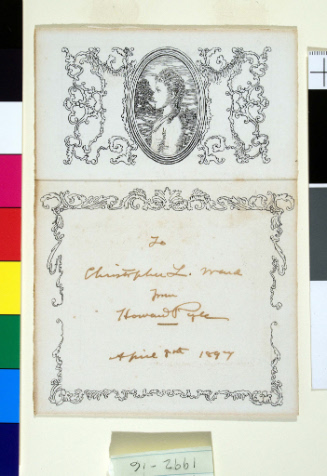 To
Christopher L. Ward
from
Howard Pyle
April 8th 1897
1992-16